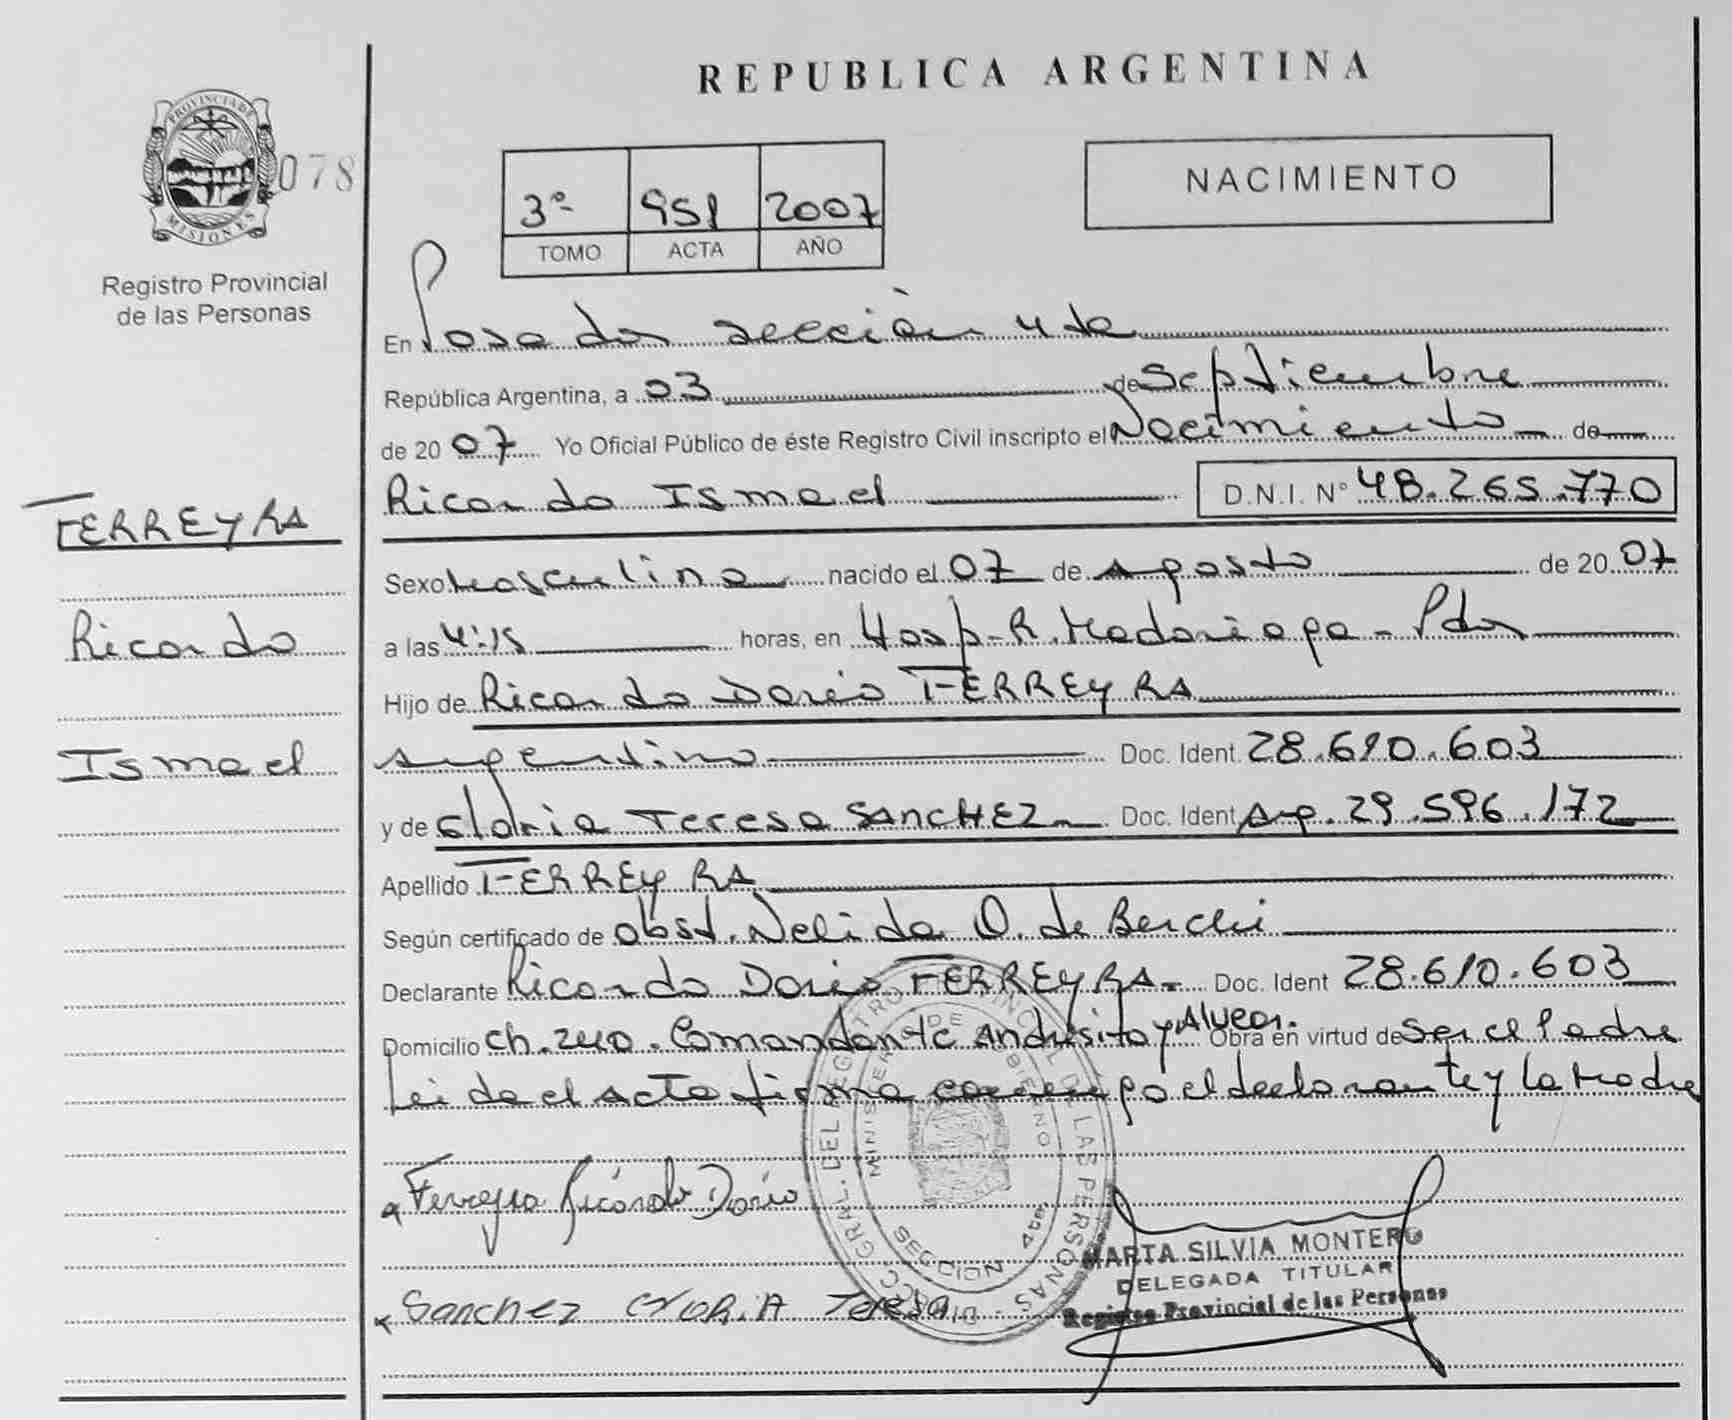 REPUBLICA ARGENTINA
PROVINCIA DE
MISIONES
078
Registro Provincial
de las Personas
3º 951 2007
TOMO ACTA AÑO
NACIMIENTO
En Posadas sección 4ta
República Argentina, a 03 de Septiembre
de 2007 Yo Oficial Público de éste Registro Civil inscripto el Nacimiento de
Ricardo Ismael D.N.I. Nº 48.265.770
FERREYRA
Ricardo
Ismael
Sexo Masculino nacido el 07 de Agosto de 2007
a las 4:15 horas, en Hosp. R. Madariaga - Pdas
Hijo de Ricardo Dario FERREYRA
argentino Doc. Ident. 28.610.603
y de Gloria Teresa SANCHEZ Doc. Ident. Arg. 29.596.172
Apellido FERREYRA
Según certificado de obst. Nelida O. de
Declarante Ricardo Dario FERREYRA Doc. Ident 28.610.603
Domicilio Ch. 240. Comandante Andresito y Alvear. Obra en virtud de Ser el Padre
Leida el acta firma conmigo el declarante y la Madre
Ferreyra Ricardo Dario
Sanchez GLORIA Teresa
DIRECC. GRAL. DEL REGISTRO PROVINCIAL DE LAS PERSONAS
MINISTERIO DE GOBIERNO
SECCION 4ta.
MARTA SILVIA MONTERO
DELEGADA TITULAR
Registro Provincial de las Personas